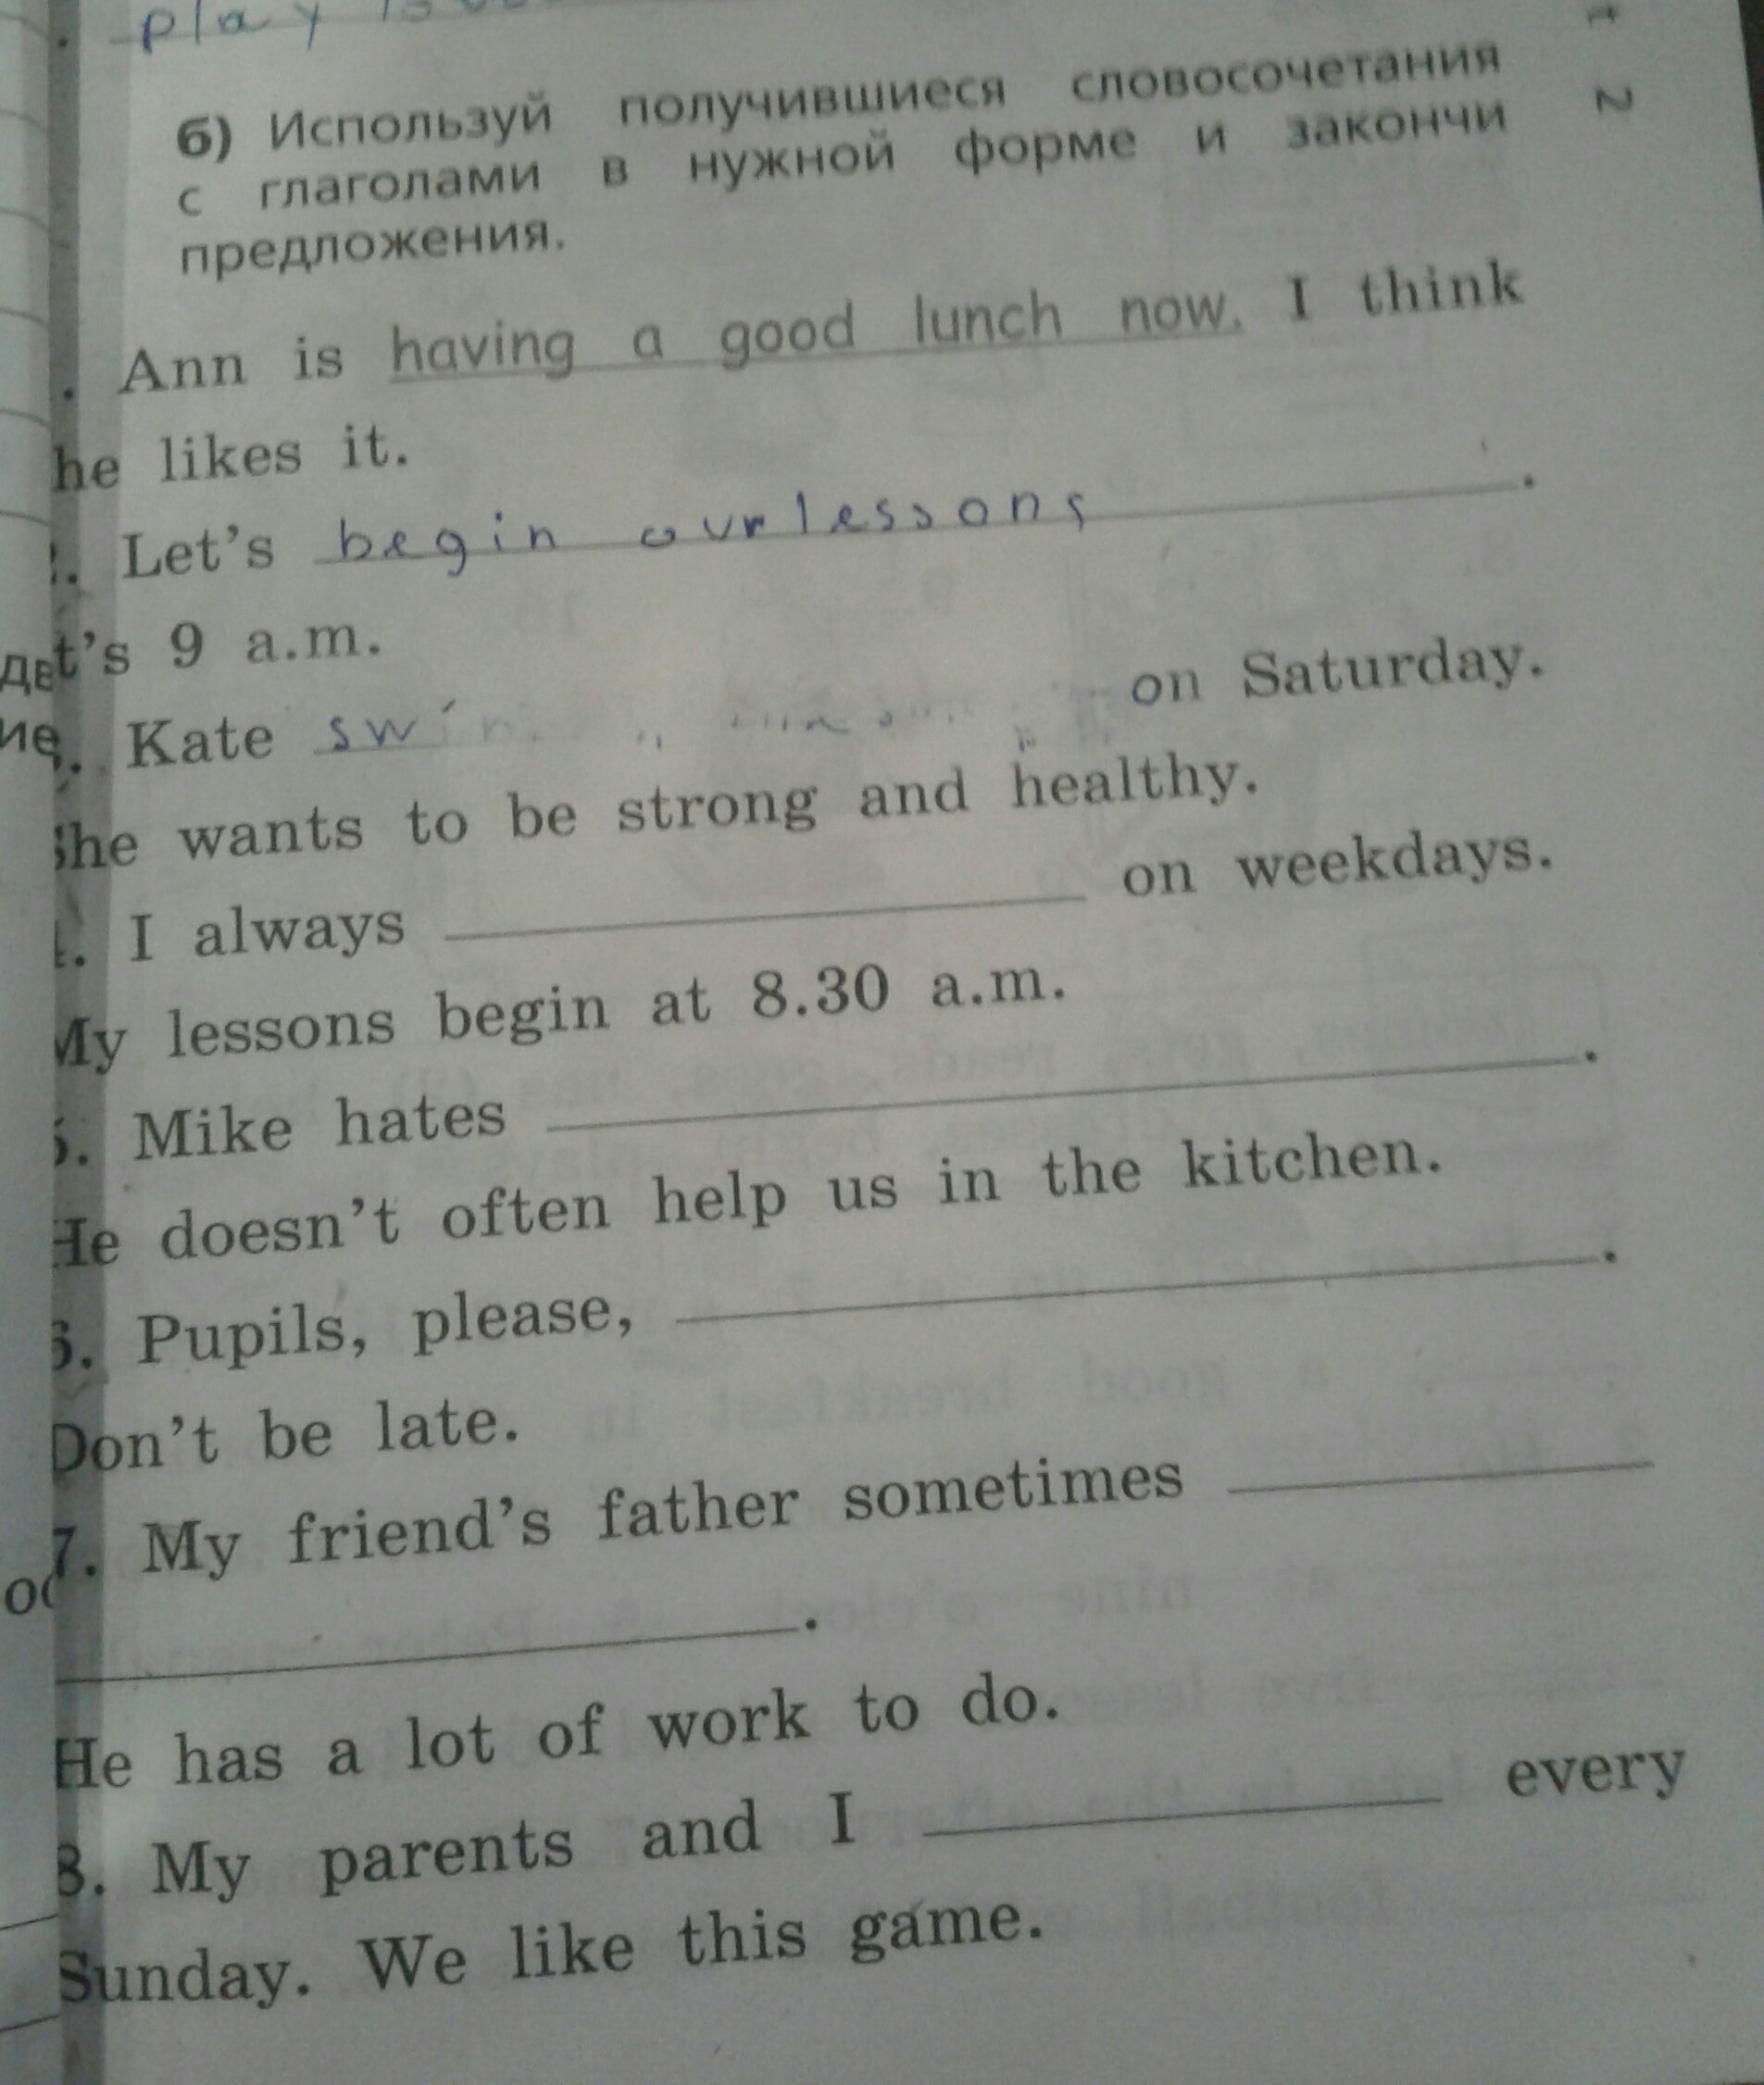 play
б) Используй получившиеся словосочетания
с глаголами в нужной форме и закончи
предложения.
. Ann is having a good lunch now. I think
he likes it.
. Let's begin our lessons .
t's 9 a.m.
. Kate on Saturday.
She wants to be strong and healthy.
. I always on weekdays.
My lessons begin at 8.30 a.m.
5. Mike hates .
He doesn't often help us in the kitchen.
6. Pupils, please, .
Don't be late.
7. My friend's father sometimes
.
He has a lot of work to do.
8. My parents and I every
Sunday. We like this game.